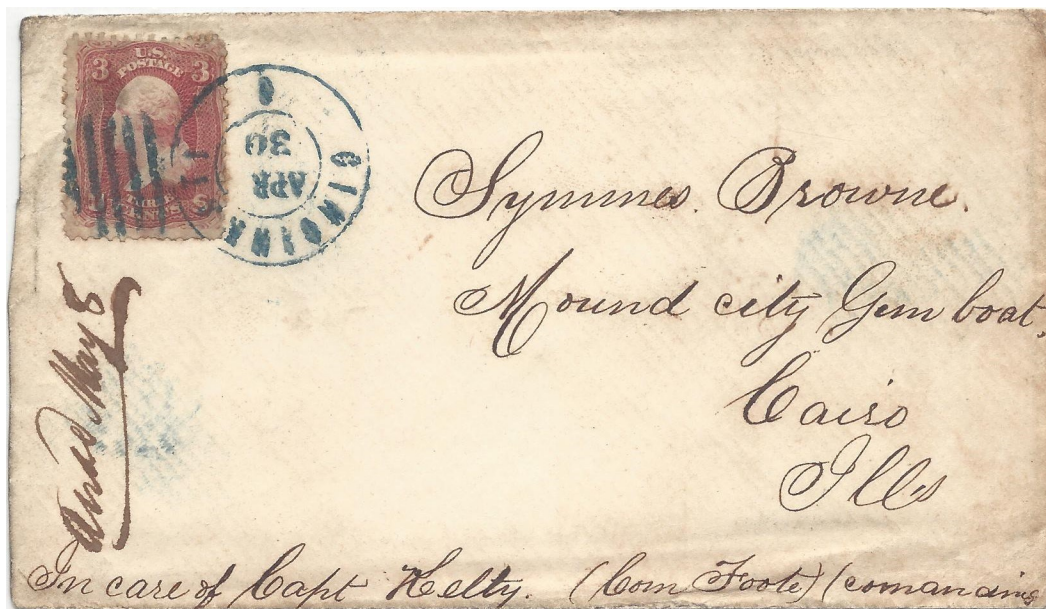 3 U.S. 3
POSTAGE
THREE
CENTS
CINCINNATI O
APR
30
Symmes. Browne.
Mound city Gun boat,
Cairo
Ills
Ansd May 8
In care of Capt Kelty. (Com Foote) (comanding